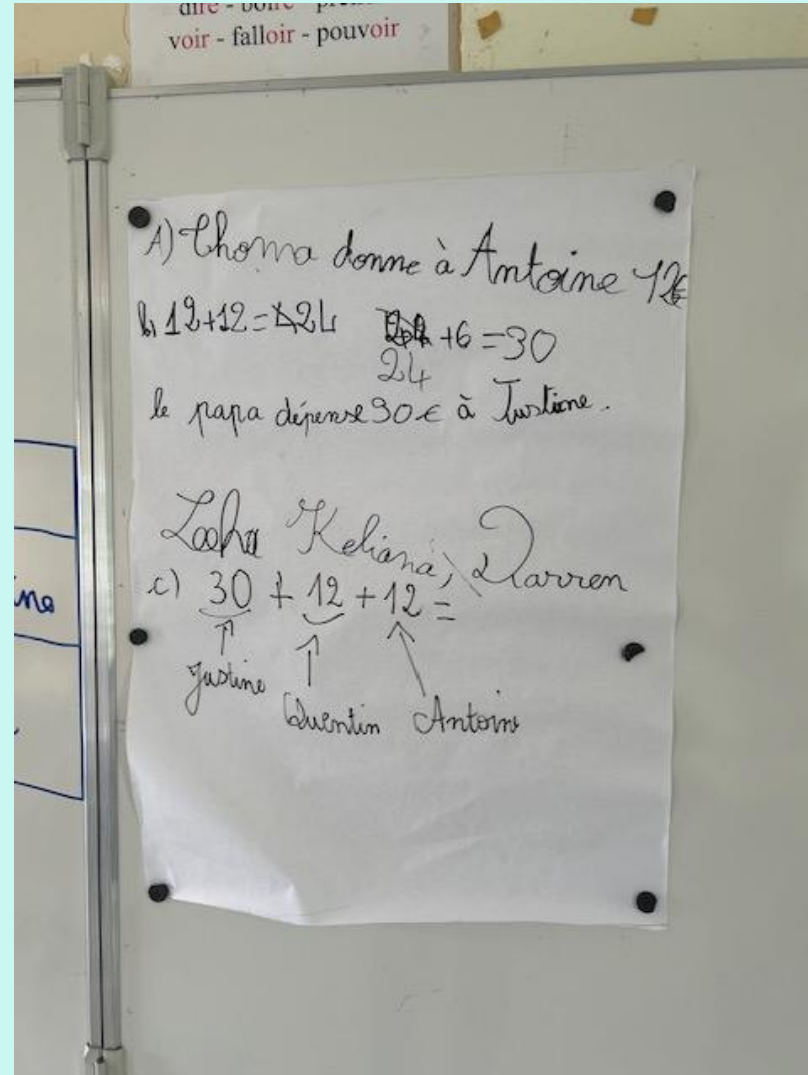 dire - boire -
voir - falloir - pouvoir
A) Thoma donne à Antoine 12€
b) 12+12=24 +6=30
24
le papa dépense 30€ à Justine.
Keliana, Darren
c) 30 + 12 + 12 =
Justine
Quentin Antoine